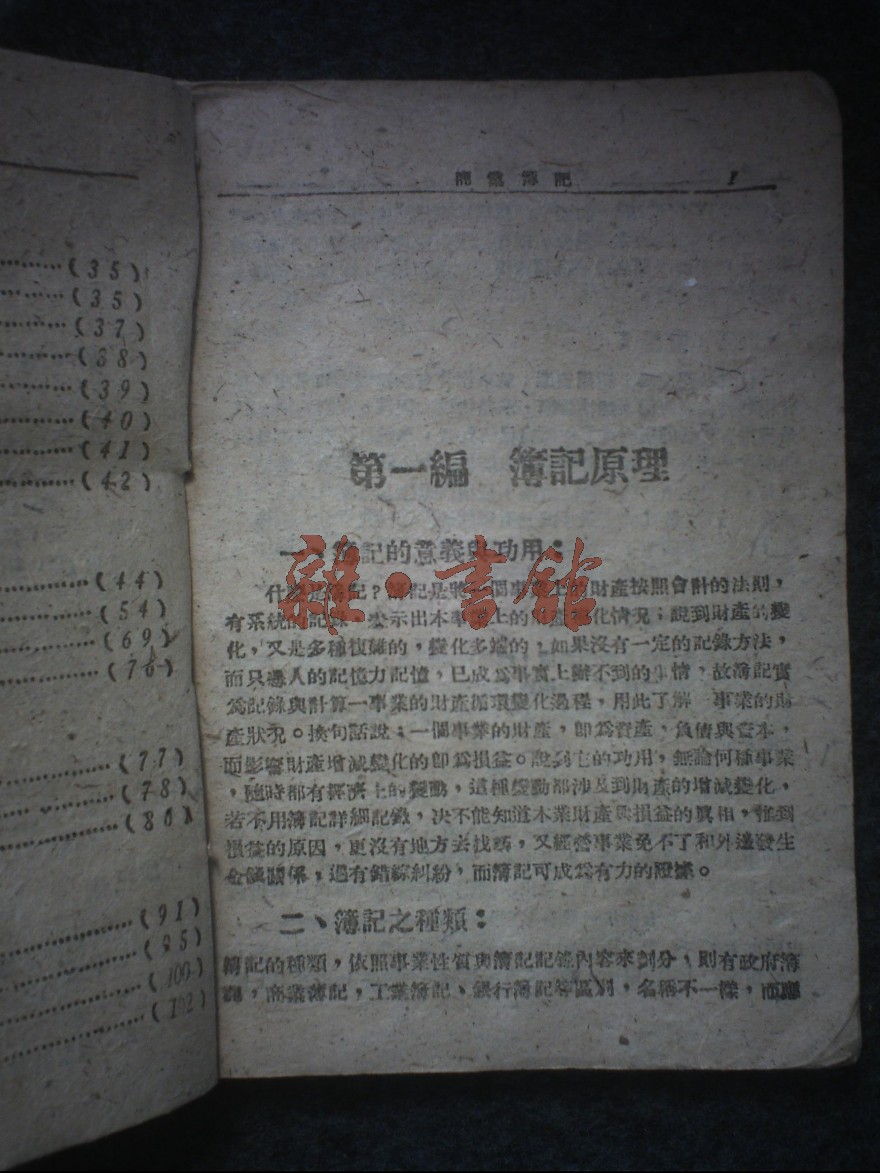 商業簿記 1
第一編 簿記原理
一、簿記的意義與功用：
什麼是簿記？簿記是將一個事業上的財產按照會計的法則，
有系統的記錄，表示出本事業上的財產變化情況；說到財產的變
化，又是多種複雜的，變化多端的，如果沒有一定的記錄方法，
而只憑人的記憶力記憶，已成爲事實上辦不到的事情，故簿記實
爲記錄與計算一事業的財產循環變化過程，用此了解一事業的財
產狀況。換句話說：一個事業的財產，卽爲資產，負債與資本，
而影響財產增減變化的卽爲損益。說到它的功用，無論何種事業
，隨時都有經濟上的變動，這種變動都涉及到財產的增減變化，
若不用簿記詳細記錄，決不能知道本業財產與損益的眞相，難到
損益的原因，更沒有地方去找嗎，又經營事業免不了和外邊發生
金錢關係，遇有錯綜糾紛，而簿記可成爲有力的證據。
二、簿記之種類：
簿記的種類，依照事業性質與簿記記錄內容來劃分，則有政府簿
記，商業簿記，工業簿記、銀行簿記等區別，名稱不一樣，而應
雜·書館
(35)
(35)
(37)
(38)
(39)
(40)
(41)
(42)
(44)
(54)
(69)
(76)
(77)
(78)
(80)
(91)
(95)
(100)
(102)